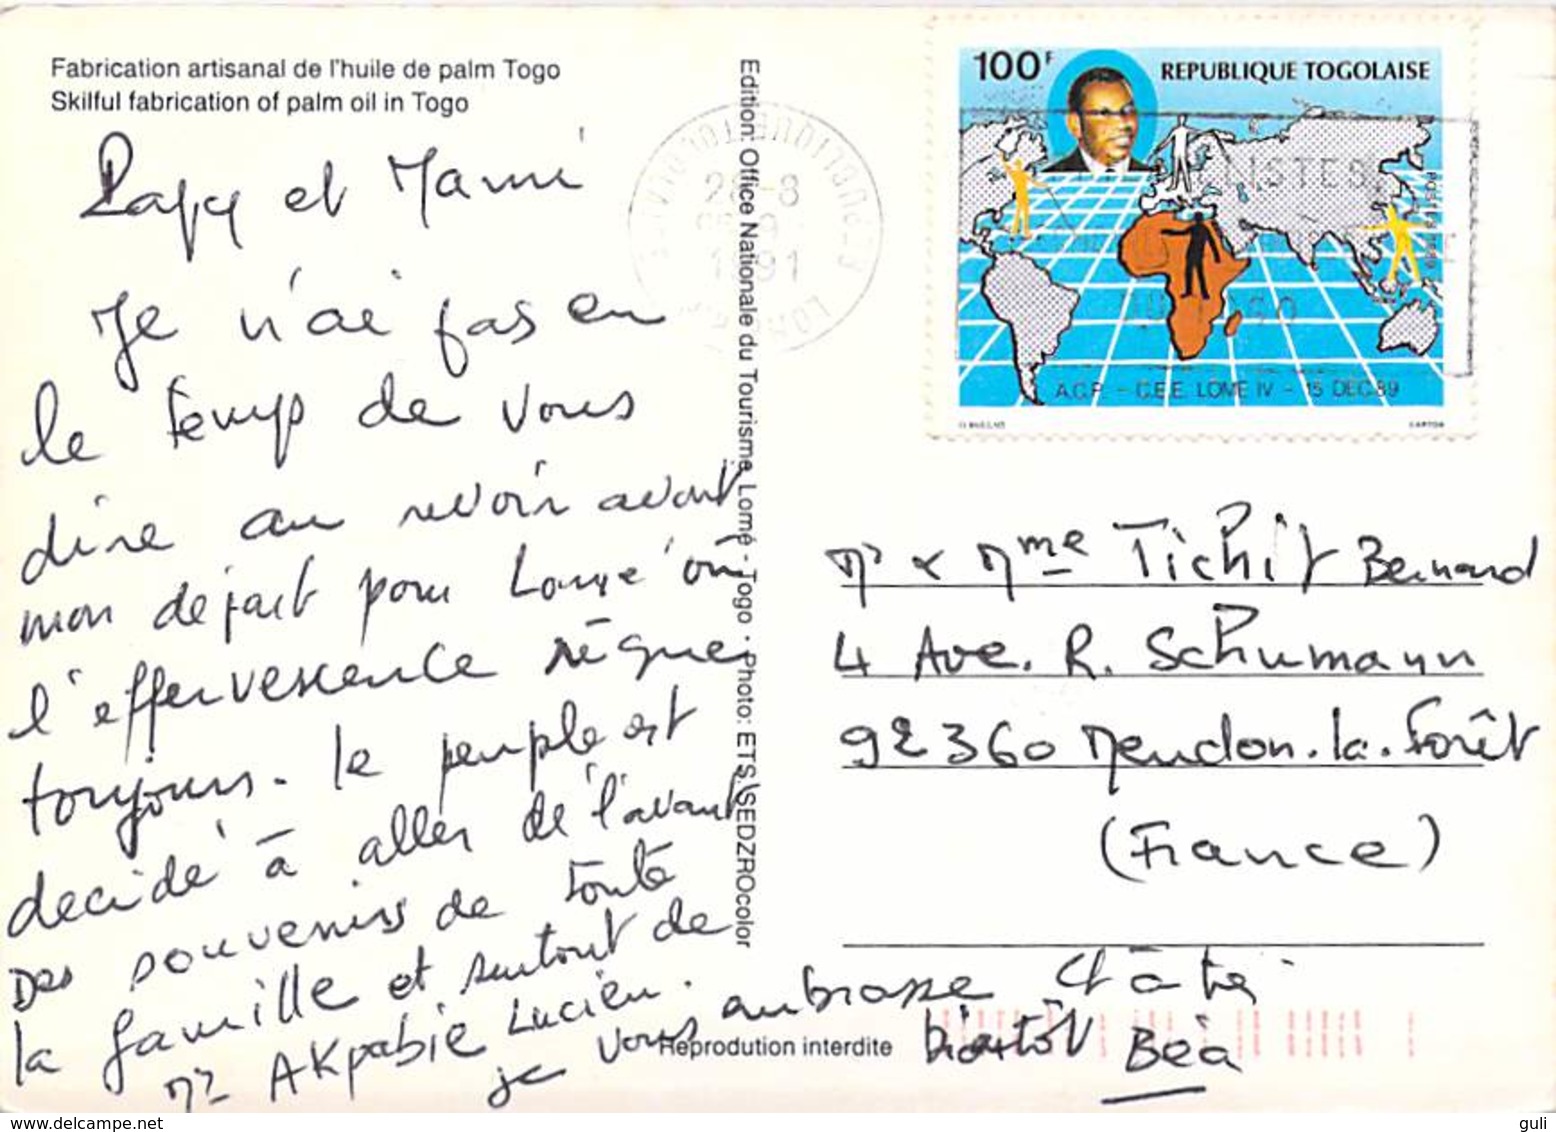 Fabrication artisanal de l'huile de palm Togo
Skilful fabrication of palm oil in Togo
Papy et Mami
Je n'ai pas eu
le temps de vous
dire au revoir avant
mon départ pour Lomé où
l'effervescence règne
toujours. le peuple est
decidé à aller de l'avant
Des souvenirs de toute
la famille et surtout de
Mr AKpabie Lucien.
je vous embrasse et à très
bientôt Béa
Edition: Office Nationale du Tourisme Lomé - Togo · Photo: ETS. SEDZROcolor
Reprodution interdite
REPUBLIQUE TOGOLAISE
28-8
1991
100F
REPUBLIQUE TOGOLAISE
POSTES 1989
A.C.P. - C.E.E. LOME IV - 15 DEC.89
CARTOR
Mr & Mme Tichit Bernard
4 Ave. R. Schumann
92360 Meudon.la.Forêt
(France)
guli